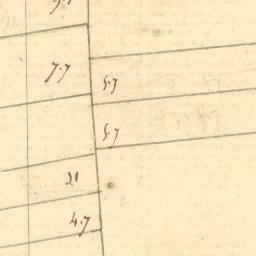 7.7
5.7
5.7
21
4.7